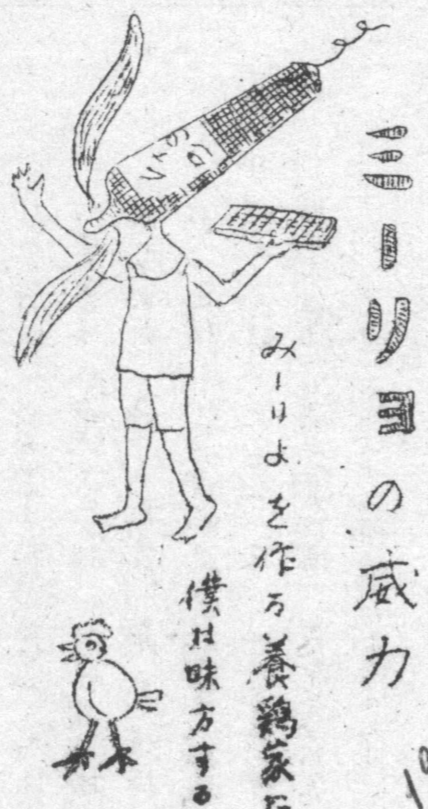 ミーリヨの威力
みーりよを作る養鶏家に
僕は味方する